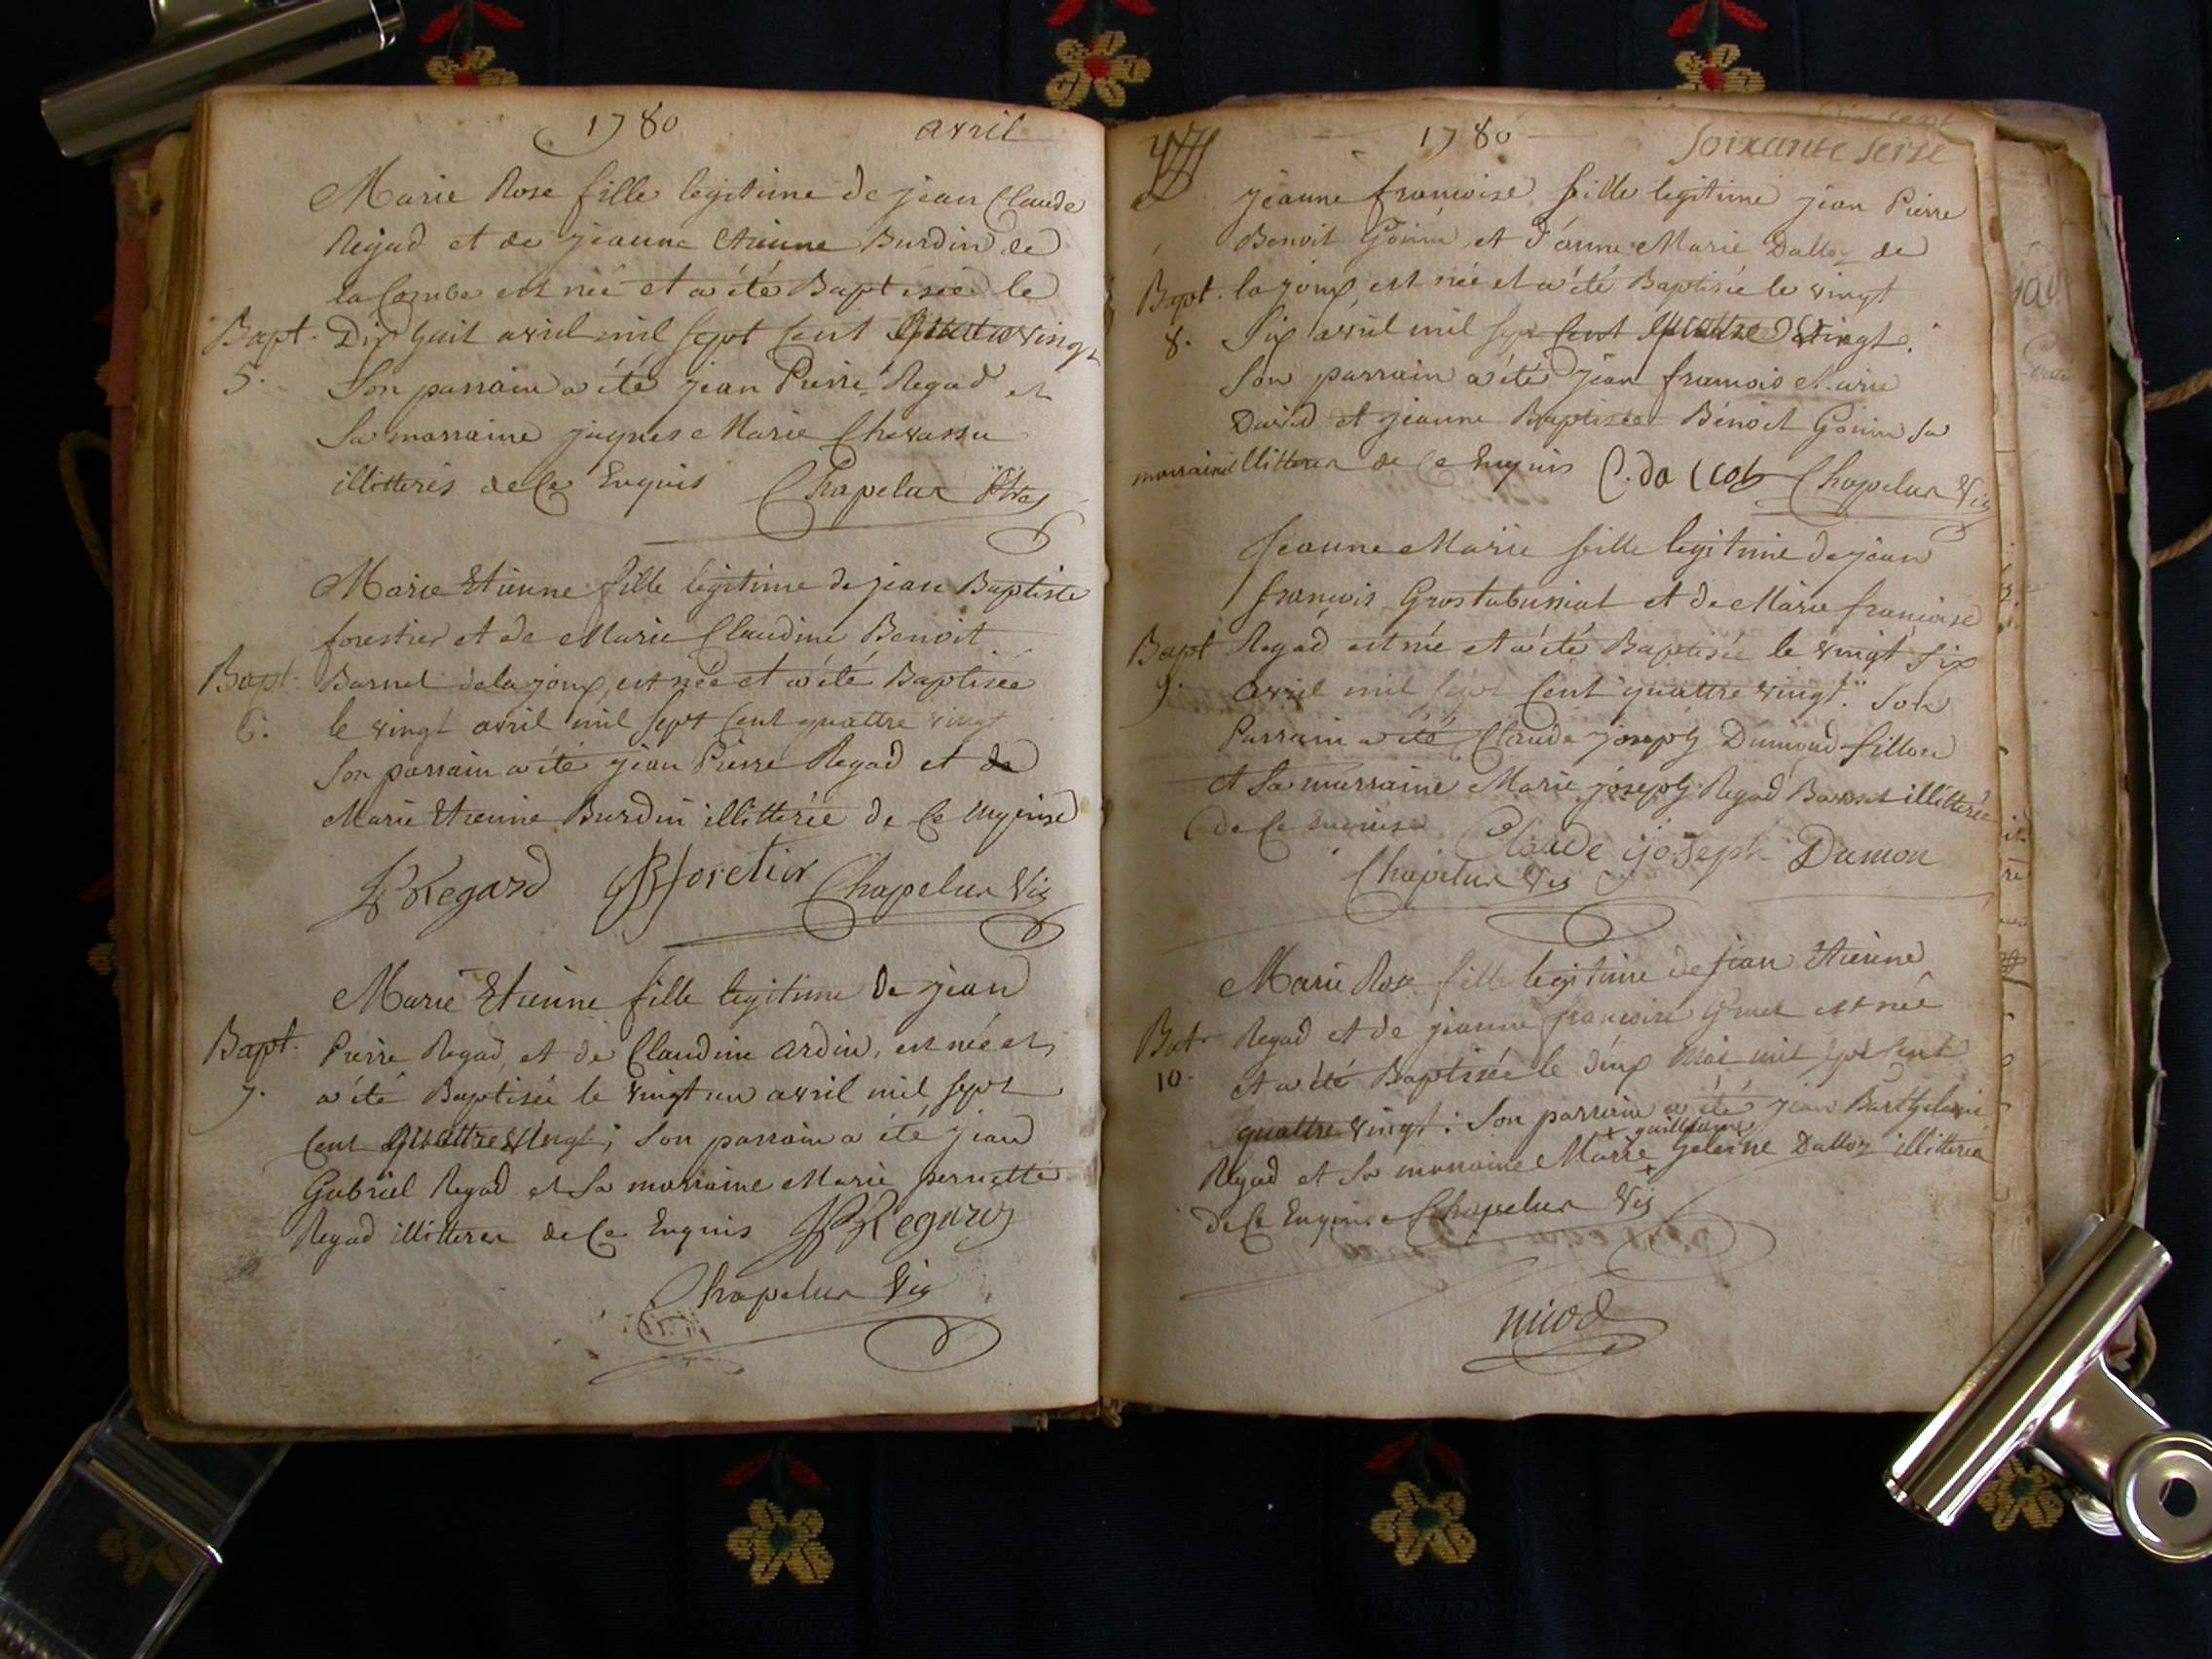 1780 avril
Marie Rose fille legitime de jean Claude
Regad et de jeanne Etienne Burdin de
la Combe est neé et a été Baptisée le
Bapt. Dix huit avril mil sept Cent quatre vingt
5. Son parrain a été jean Pierre Regad et
Sa marraine jaques Marie Chevassu
illitterés de Ce Enquis Chapelur
Marie Etienne fille legitime de jean Baptiste
forestier et de Marie Claudine Benoit
Bapt. Barnet de la joux, est née et a été Baptisée
6. le vingt avril mil sept Cent quattre vingt
Son parrain a été jean Pierre Regad et de
Marie Etienne Burdin illitterée de Ce enquise
JPRegard JBforetier Chapelur Vic
Marie Etienne fille legitime de jean
Bapt. Pierre Regad, et de Claudine ardin, est née et
7. a été Baptisée le vingt un avril mil sept
Cent quattre vingt; Son parrain a été jean
Gabriel Regad et Sa marraine Marie pernette
Regad illitterer de Ce Enquis JPRegard
Chapelur Vic
1780 Soixante seize
jeanne francoise fille legitime jean Pierre
Benoit Gonin, et d'anne Marie Dalloz de
Bapt. la joux, est née et a été Baptisée le vingt
8. Six avril mil sept Cent quattre vingt.
Son parrain a été jean francois
David et jeanne Baptisée Bénoit Gonin sa
marraine illitterer de Ce Enquis Chapelur Vic
Jeanne Marie fille legitime de jean
francois Grostabussiat et de Marie francoise
Bapt Regad est née et a été Baptisée le vingt six
9. avril mil sept Cent quattre vingt. Son
Parrain a été Claude joseph Dumond fillon
et Sa marraine Marie joseph Regad Barnet illitterée
de Ce enquise Claude joseph Dumon
Chapelur Vic
Marie Rose fille legitime de jean Etienne
Bat. Regad et de jeanne francoise Gruet est née
10. et a été Baptisée le deux Mai mil sept Cent
quattre vingt: Son parrain a été jean Barthelemi
+ guillaume
Regad et Sa marraine Marie Dalloz illitterée
de Ce Enquise Chapelur Vic
nicod